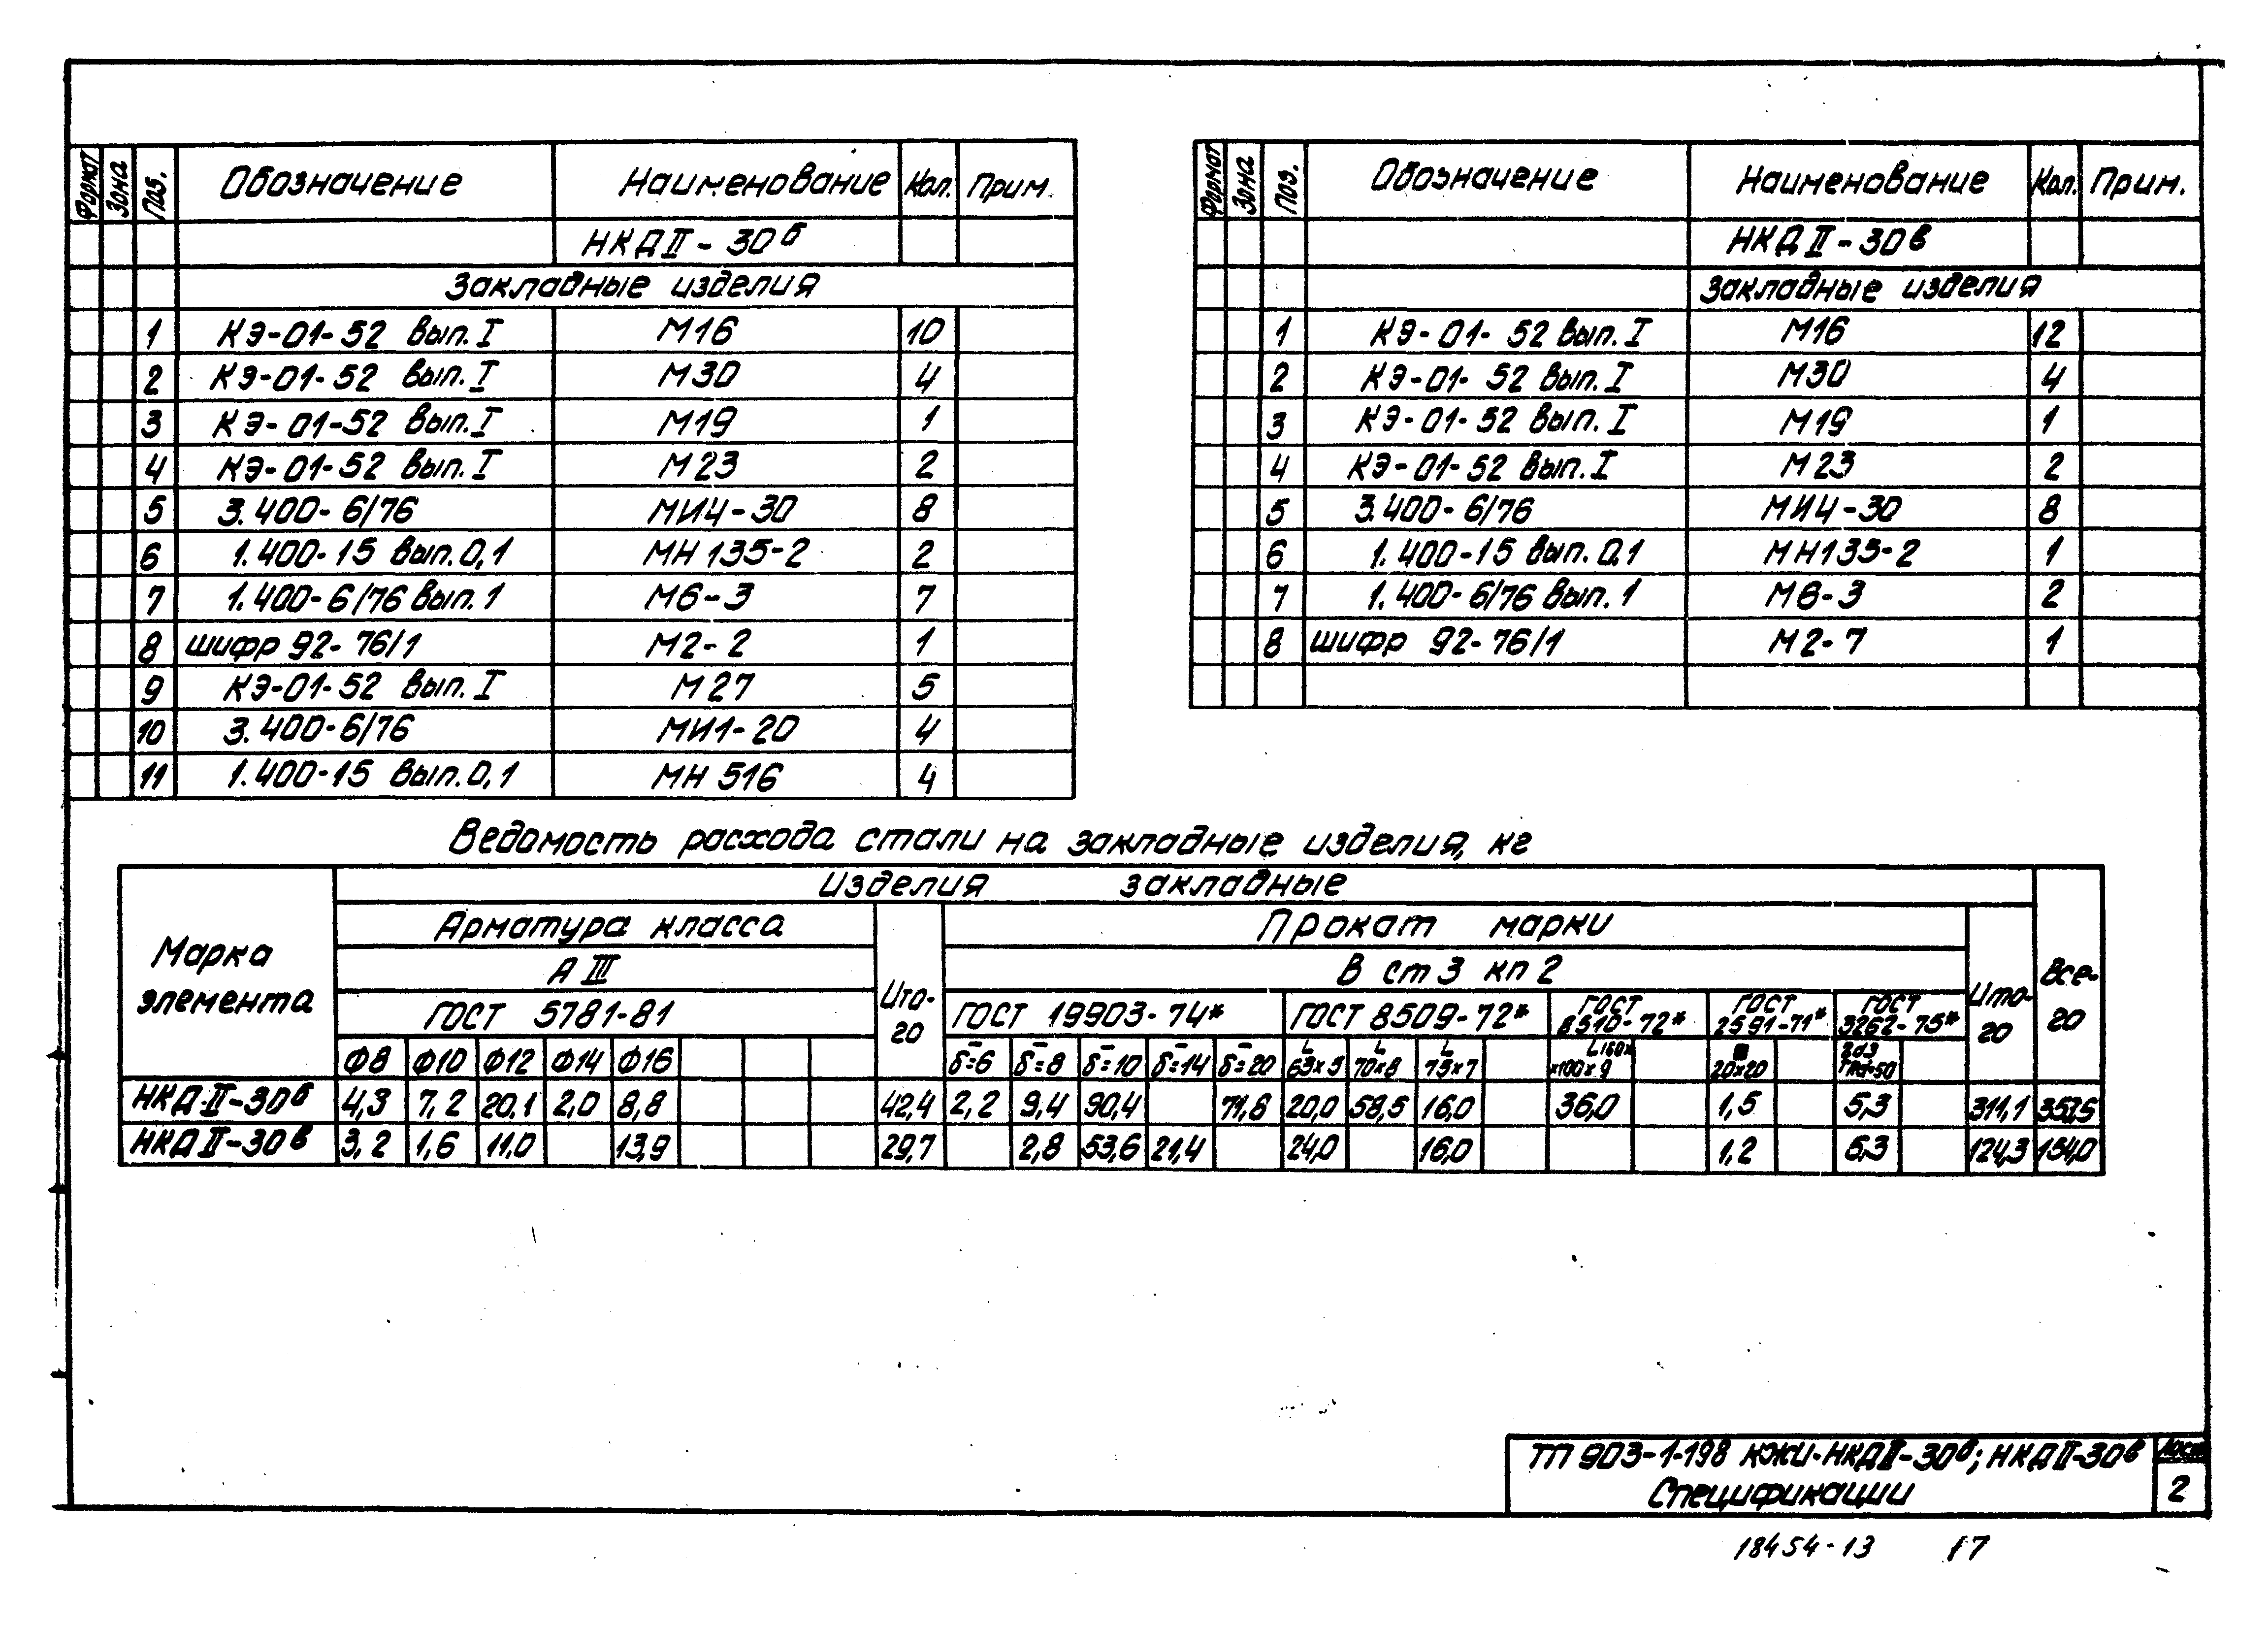 Формат Зона Поз. Обозначение Наименование Кол. Прим.
НКДⅡ-30б
Закладные изделия
1 КЭ-01-52 вып.I М16 10
2 КЭ-01-52 вып.I М30 4
3 КЭ-01-52 вып.I М19 1
4 КЭ-01-52 вып.I М23 2
5 3.400-6/76 МИ4-30 8
6 1.400-15 вып.0,1 МН135-2 2
7 1.400-6/76 вып.1 М6-3 7
8 шифр 92-76/1 М2-2 1
9 КЭ-01-52 вып.I М27 5
10 3.400-6/76 МИ1-20 4
11 1.400-15 вып.0,1 МН516 4
Формат Зона Поз. Обозначение Наименование Кол. Прим.
НКДⅡ-30в
Закладные изделия
1 КЭ-01-52 вып.I М16 12
2 КЭ-01-52 вып.I М30 4
3 КЭ-01-52 вып.I М19 1
4 КЭ-01-52 вып.I М23 2
5 3.400-6/76 МИ4-30 8
6 1.400-15 вып.0,1 МН135-2 1
7 1.400-6/76 вып.1 М6-3 2
8 шифр 92-76/1 М2-7 1
Ведомость расхода стали на закладные изделия, кг
Марка элемента
Изделия закладные
Всего
Арматура класса
Итого
Прокат марки
Итого
АⅢ
В ст3 кп2
ГОСТ 5781-81
ГОСТ 19903-74*
ГОСТ 8509-72*
ГОСТ 8510-72*
ГОСТ 2591-71*
ГОСТ 3262-75*
Ф8 Ф10 Ф12 Ф14 Ф16 δ=6 δ=8 δ=10 δ=14 δ=20 L 63×5 L 70×8 L 75×7 L160××100×9 ■ 20×20
НКД-Ⅱ-30б 4,3 7,2 20,1 2,0 8,8 42,4 2,2 9,4 90,4 71,8 20,0 58,5 16,0 36,0 1,5 5,3 311,1 353,5
НКДⅡ-30в 3,2 1,6 11,0 13,9 29,7 2,8 53,6 21,4 24,0 16,0 1,2 5,3 124,3 154,0
ТП 903-1-198 КЖИ-НКДⅡ-30б; НКДⅡ-30в
Лист
Спецификации
2
18454-13 17